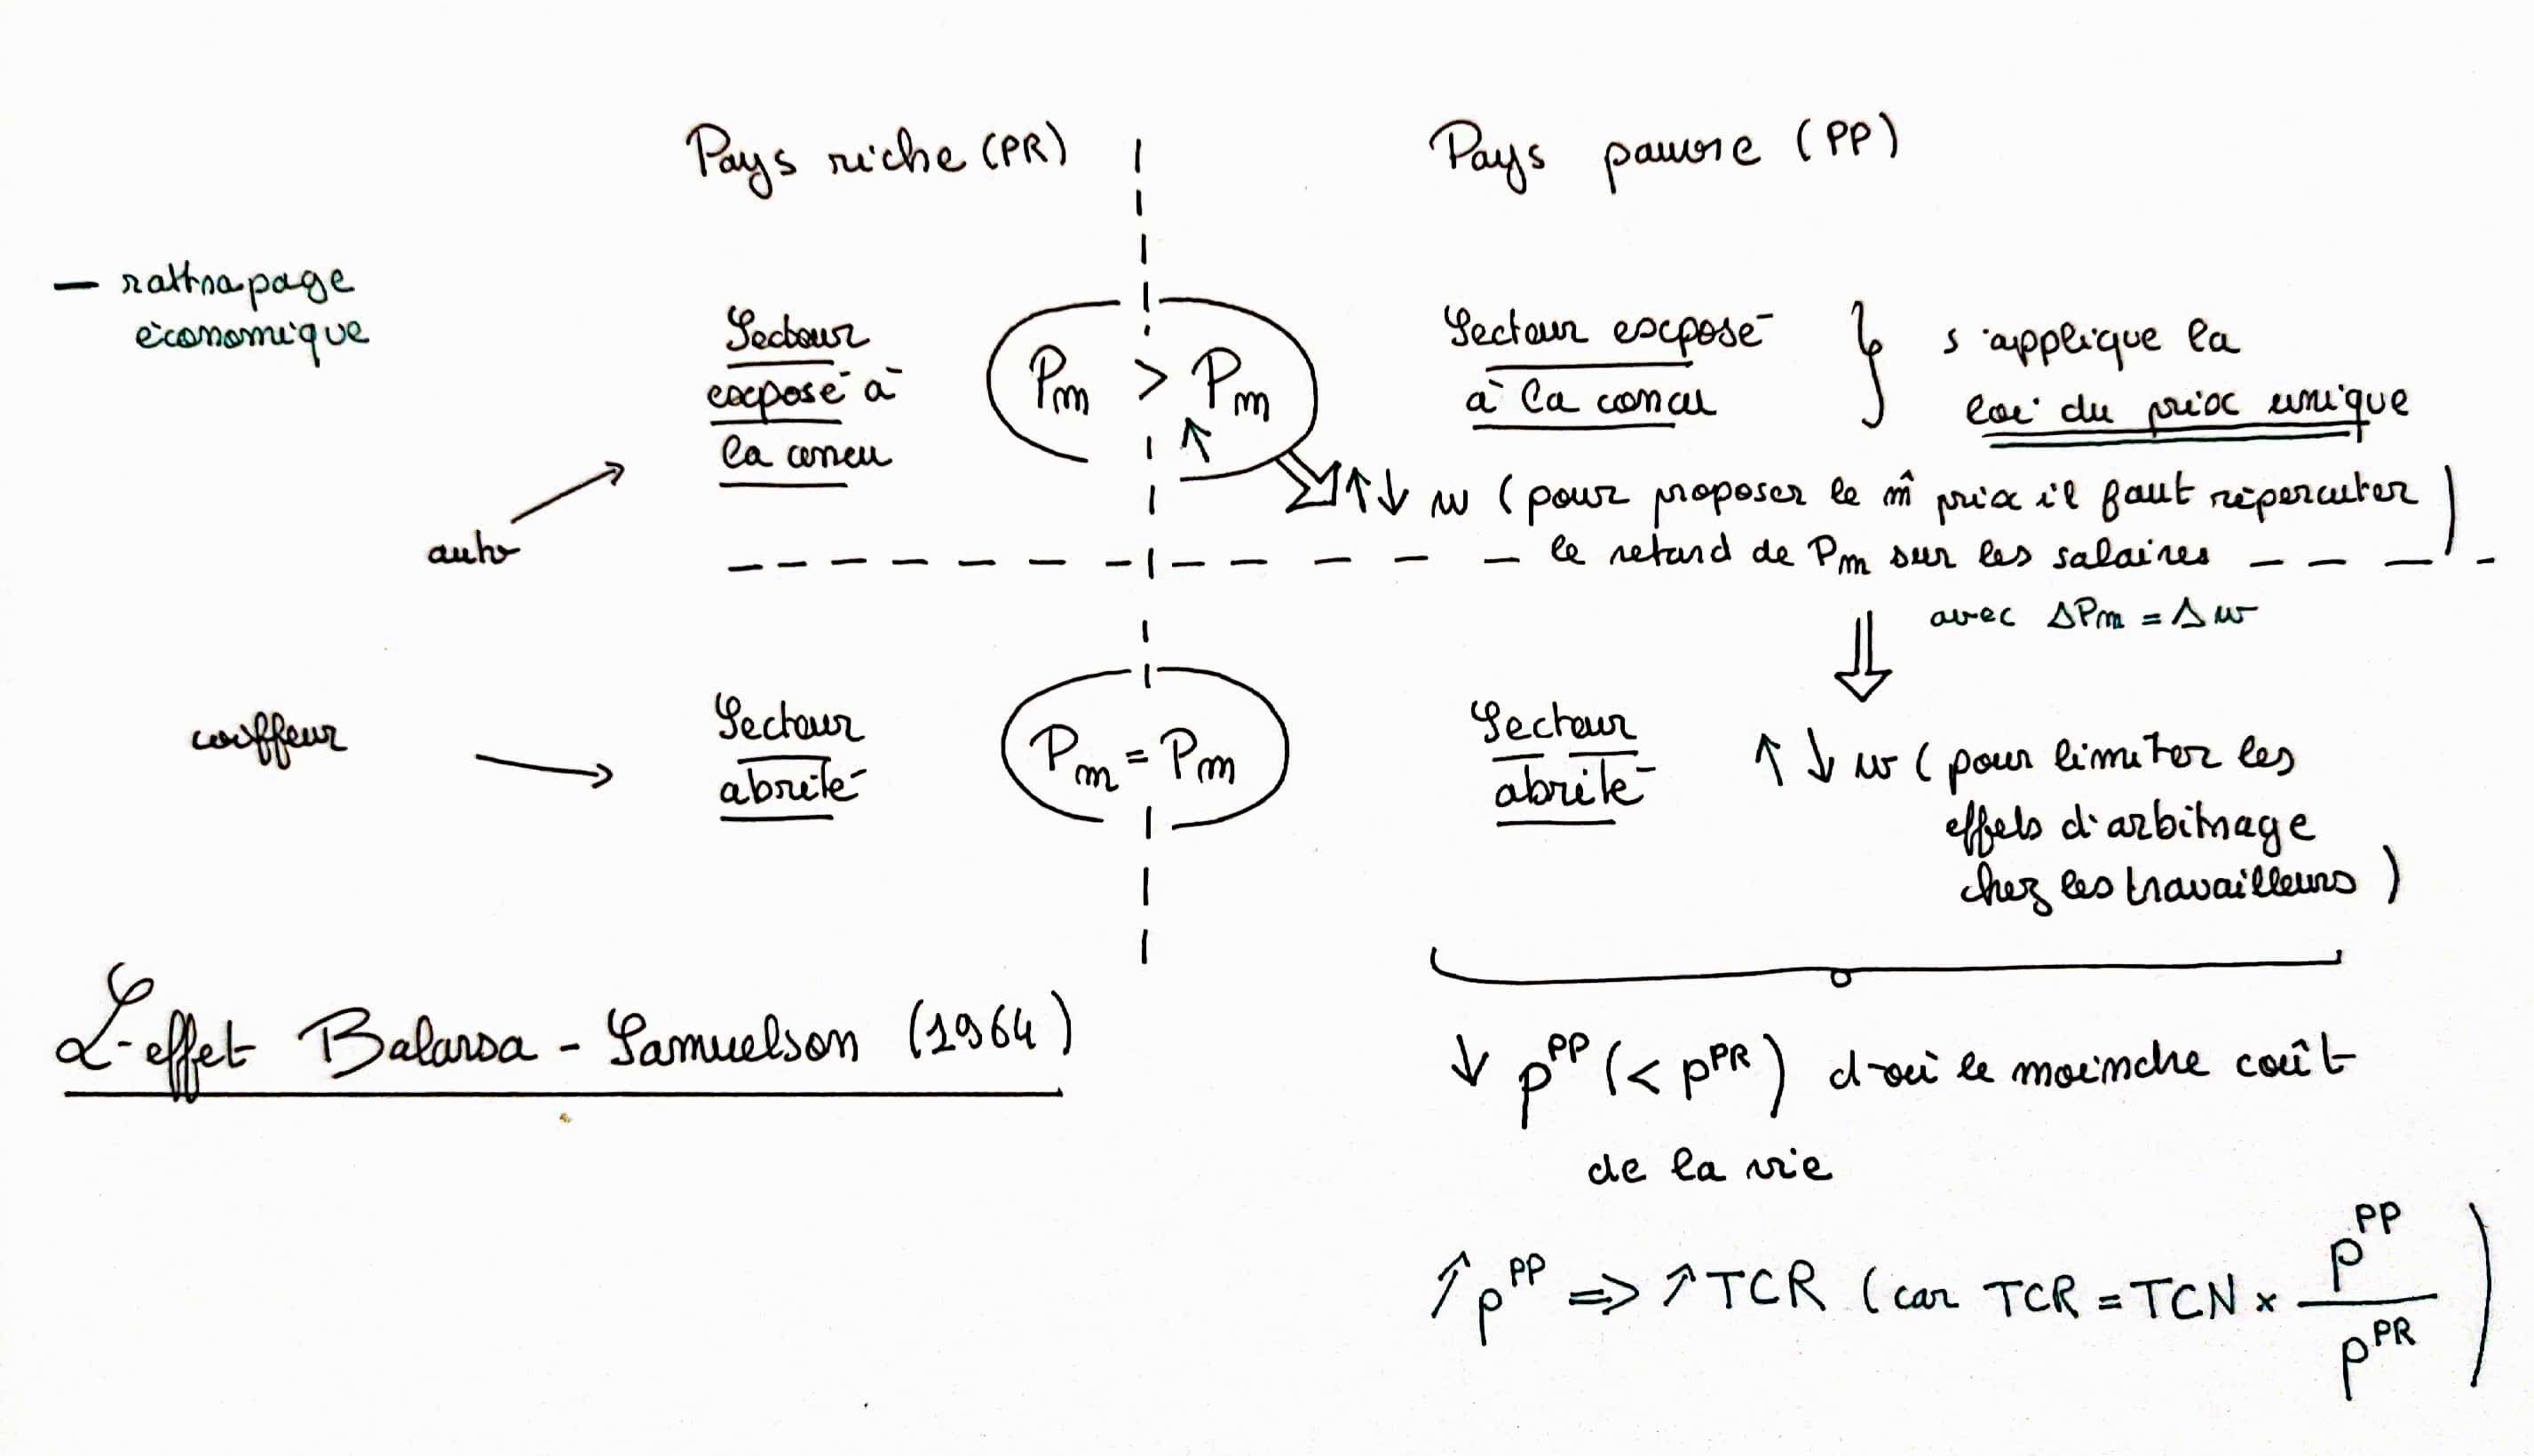 Pays riche (PR)
Pays pauvre (PP)
— rattrapage
économique
Secteur
exposé à
la concu
Pm > Pm
↑
Secteur exposé
à la concu
s'applique la
loi du prix unique
auto
↑↓ w (pour proposer le m̂ prix il faut répercuter
le retard de Pm sur les salaires)
avec ΔPm = Δw
coiffeur
Secteur
abrité
Pm = Pm
Secteur
abrité
↑↓ w (pour limiter les
effets d'arbitrage
chez les travailleurs)
L'effet Balassa - Samuelson (1964)
↓ p^PP (< p^PR) d'où le moindre coût
de la vie
↑ p^PP ⇒ ↑ TCR (car TCR = TCN × p^PP / p^PR)